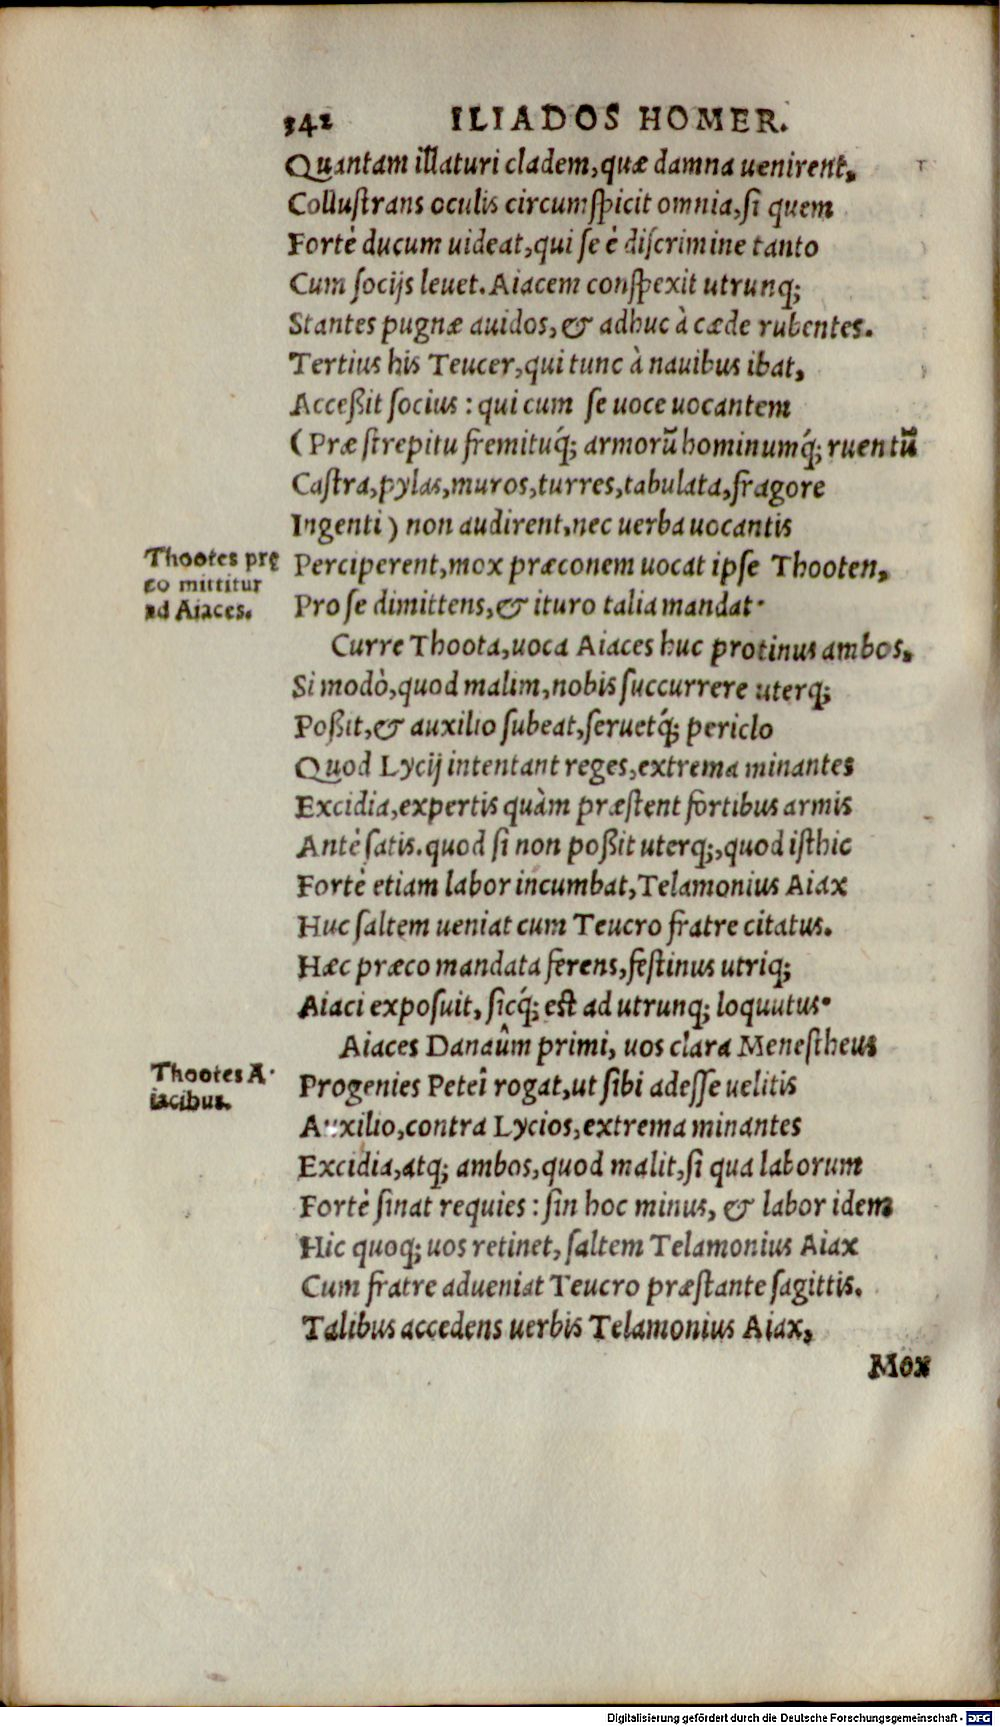 342 ILIADOS HOMER.
Quantam illaturi cladem, quæ damna uenirent,
Collustrans oculis circumspicit omnia, si quem
Fortè ducum uideat, qui se è discrimine tanto
Cum socijs leuet. Aiacem conspexit utrunq;
Stantes pugnæ auidos, & adhuc à cæde rubentes.
Tertius his Teucer, qui tunc à nauibus ibat,
Acceßit socius: qui cum se uoce uocantem
(Præ strepitu fremituq́; armorū hominumq́; ruentū
Castra, pylas, muros, turres, tabulata, fragore
Ingenti) non audirent, nec uerba uocantis
Thootes prę
co mittitur
ad Aiaces.
Perciperent, mox præconem uocat ipse Thooten,
Pro se dimittens, & ituro talia mandat.
Curre Thoota, uoca Aiaces huc protinus ambos,
Si modò, quod malim, nobis succurrere uterq;
Poßit, & auxilio subeat, seruetq́; periclo
Quod Lycij intentant reges, extrema minantes
Excidia, expertis quàm præstent fortibus armis
Antè satis. quod si non poßit uterq;, quod isthic
Fortè etiam labor incumbat, Telamonius Aiax
Huc saltem ueniat cum Teucro fratre citatus.
Hæc præco mandata ferens, festinus utriq;
Aiaci exposuit, sicq́; est ad utrunq; loquutus.
Aiaces Danaûm primi, uos clara Menestheus
Thootes A.
iacibus.
Progenies Peteî rogat, ut sibi adesse uelitis
Auxilio, contra Lycios, extrema minantes
Excidia, atq; ambos, quod malit, si qua laborum
Fortè sinat requies: sin hoc minus, & labor idem
Hic quoq; uos retinet, saltem Telamonius Aiax
Cum fratre adueniat Teucro præstante sagittis.
Talibus accedens uerbis Telamonius Aiax,
Mox
Digitalisierung gefördert durch die Deutsche Forschungsgemeinschaft - DFG